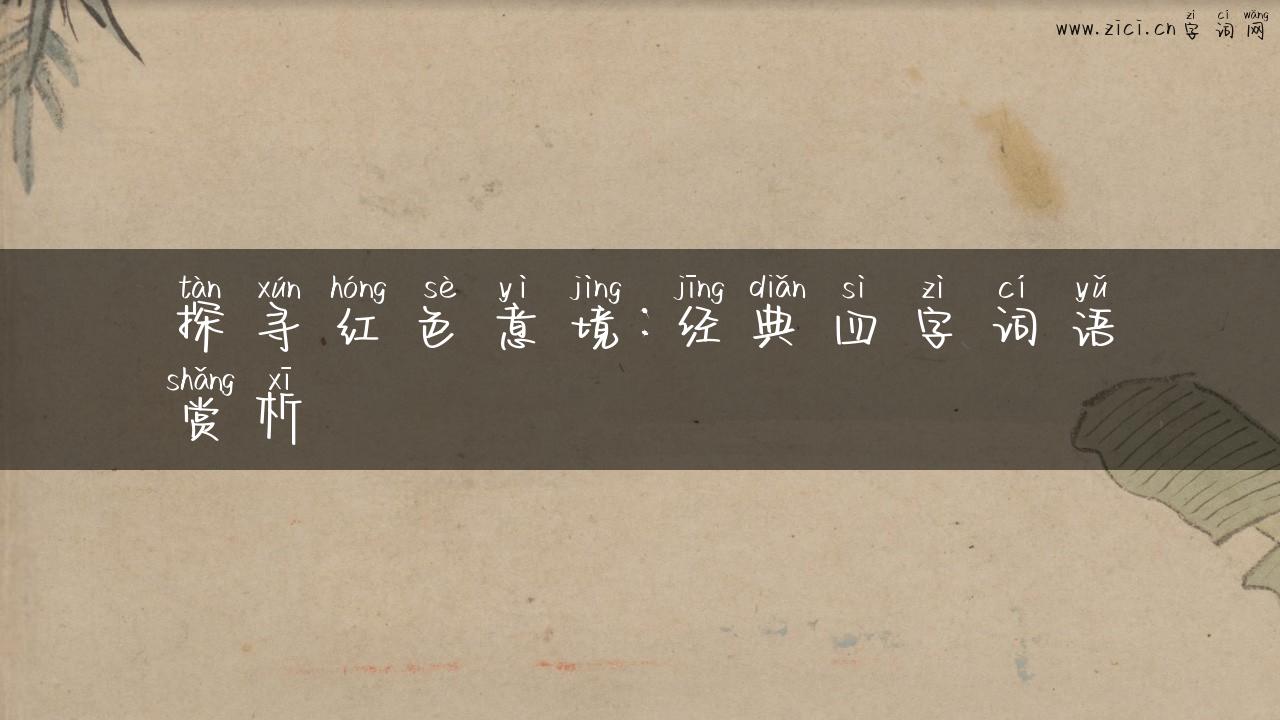 zì cí wǎng
www.zici.cn 字词网
tàn xún hóng sè yì jìng jīng diǎn sì zì cí yǔ
探寻红色意境：经典四字词语
shǎng xī
赏析